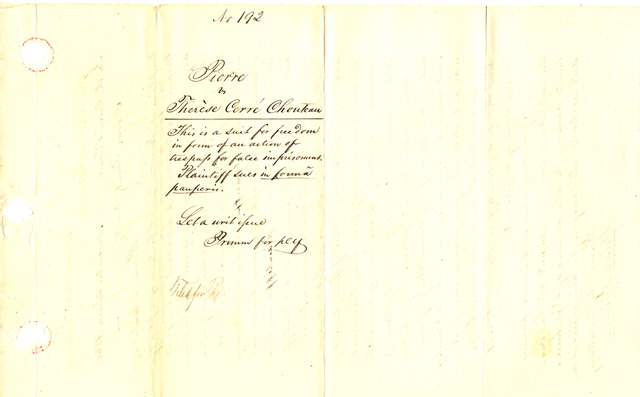 No 192
Pierre
vs
Therèse Cerré Chouteau
This is a suit for freedom
in form of an action of
trespass for false imprisonment.
Plaintiff sues in formâ
pauperis.
Let a writ issue
for plff
Filed